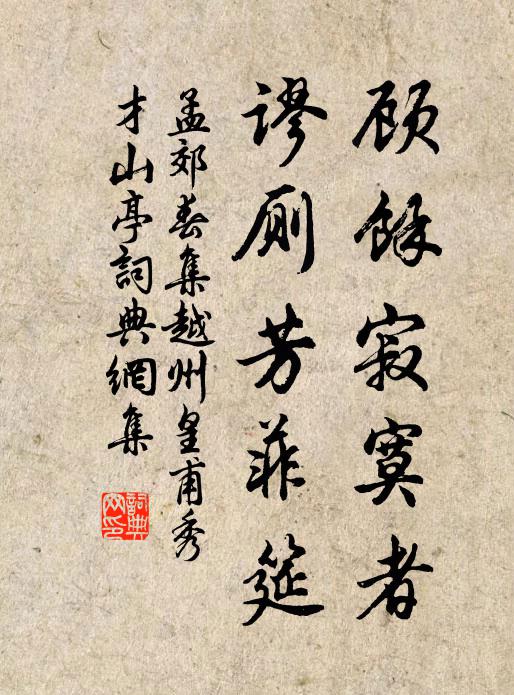 顾馀寂寞者
谬厕芳菲筵
孟郊春集越州皇甫秀
才山亭詞典網集
詞典
网印